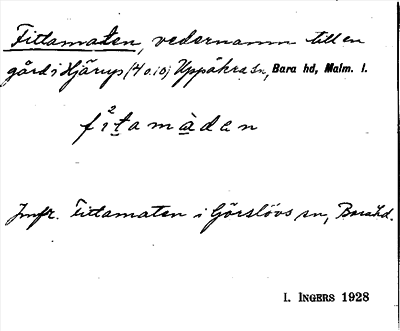 Fittamaten, vedernamn till en
gård i Hjärup (4 o. 10) Uppåkra sn, Bara hd, Malm. l.
fi²tamàdan
Jmfr. Fittamaten i Görslövs sn, Bara hd.
I. INGERS 1928